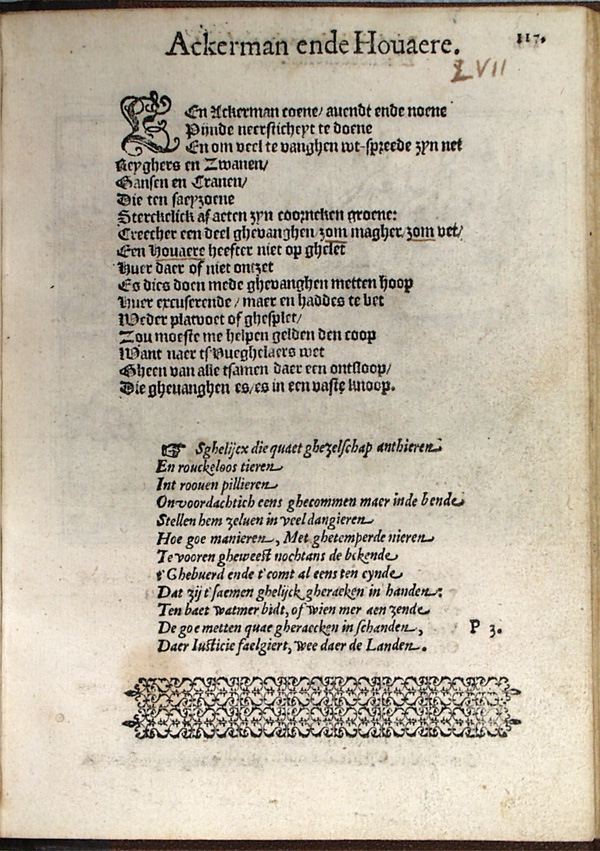 Ackerman ende Houaere.
117.
LVII
EEn Ackerman coene/ auendt ende noene
Pijnde neersticheyt te doene
En om veel te vanghen wt-spreede zyn net
Reyghers en Zwanen/
Gansen en Cranen/
Die ten saeyzoene
Sterckelick af aeten zyn coorneken groene:
Creecher een deel ghevanghen/ zom magher/ zom vet/
Een Houaere heefter niet op ghelet
Huer daer of niet ontzet
Es dies doen mede ghevanghen metten hoop
Huer excuserende/ maer en haddes te bet
Weder platvoet of ghesplet/
Zou moeste me helpen gelden den coop
Want naer ts Vueghelaers wet
Gheen van alle tsamen daer een ontsloop/
Die gheuanghen es/ es in een vaste knoop.
☞ Sghelijcx die quaet ghezelschap anthieren
En rouckeloos tieren
Int roouen pillieren
Onvoordachtich eens ghecommen maer inde bende
Stellen hem zeluen in veel dangieren
Hoe goe manieren, Met ghetemperde nieren
Te vooren gheweest nochtans de bekende
t'Ghebuerd ende t'comt al eens ten eynde
Dat zij t'saemen ghelijck gheraeken in handen:
Ten baet watmer bidt, of wien mer aen zende
De goe metten quae gheraecken in schanden,
Daer Iusticie faelgiert, wee daer de Landen.
P 3.